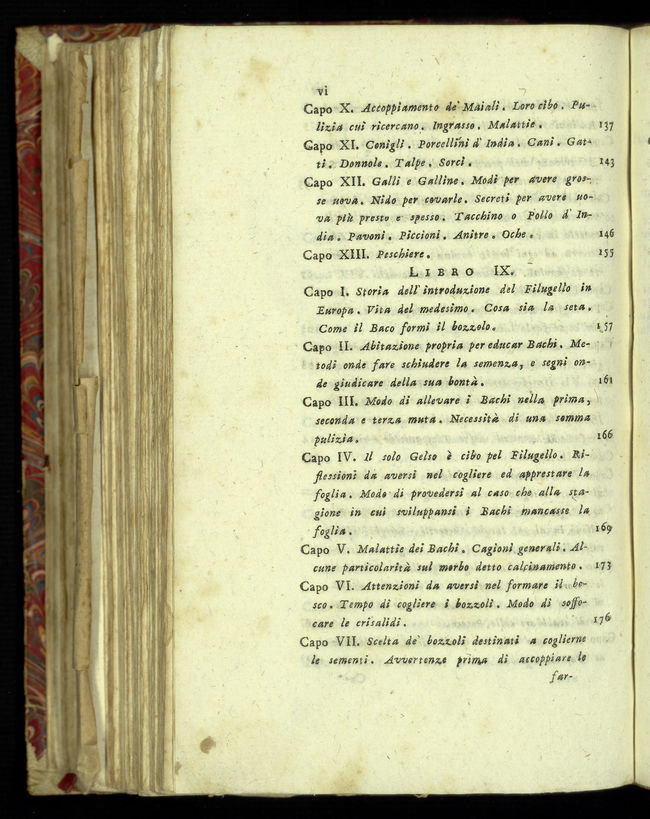 vi
Capo X. Accoppiamento de' Maiali. Loro cibo. Pu-
lizia cui ricercano. Ingrasso. Malattie. 137
Capo XI. Conigli. Porcellini d' India. Cani. Gat-
ti. Donnole. Talpe. Sorci. 143
Capo XII. Galli e Galline. Modi per avere gros-
se uova. Nido per covarle. Secreti per avere uo-
va più presto e spesso. Tacchino o Pollo d' In-
dia. Pavoni. Piccioni. Anitre. Oche. 146
Capo XIII. Peschiere. 155
LIBRO IX.
Capo I. Storia dell' introduzione del Filugello in
Europa. Vita del medesimo. Cosa sia la seta.
Come il Baco formi il bozzolo. 157
Capo II. Abitazione propria per educar Bachi. Me-
todi onde fare schiudere la semenza, e segni on-
de giudicare della sua bontà. 161
Capo III. Modo di allevare i Bachi nella prima,
seconda e terza muta. Necessità di una somma
pulizia. 166
Capo IV. Il solo Gelso è cibo pel Filugello. Ri-
flessioni da aversi nel cogliere ed apprestare la
foglia. Modo di provedersi al caso che alla sta-
gione in cui sviluppansi i Bachi mancasse la
foglia. 169
Capo V. Malattie dei Bachi. Cagioni generali. Al-
cune particolarità sul morbo detto calcinamento. 173
Capo VI. Attenzioni da aversi nel formare il bo-
sco. Tempo di cogliere i bozzoli. Modo di soffo-
care le crisalidi. 176
Capo VII. Scelta de' bozzoli destinati a coglierne
le sementi. Avvertenze prima di accoppiare le
far-